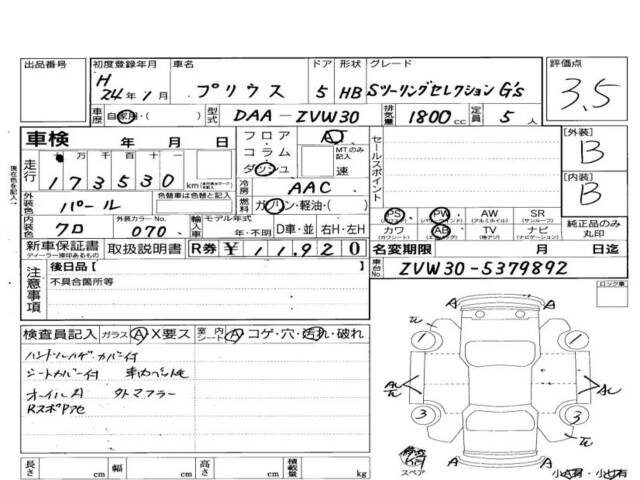 出品番号 初度登録年月 車名 ドア 形状 グレード 評価点
H 24年1月 プリウス 5 HB Sツーリングセレクション G's 3.5
車歴 自家用・( ) 型式 DAA-ZVW30 排気量 1800cc 定員 5人
車検 年 月 日 フロア AT セールスポイント [外装]
コラム MTのみ記入 B
走行 十万千百十一 ダッシュ 速
173530 km 冷房 AAC [内装]
外装色 パール 色替車は色替と記入 燃料 ガソリン・軽油・( ) B
PS PW AW SR
内装色 クロ 外装カラーNo. 070 輸入車 モデル年式 年・不明 D車・並 右H・左H カワ AB TV ナビ 純正品のみ丸印
新車保証書 取扱説明書 R券 ¥11,920 名変期限 月 日迄
ディーラー捺印あるもの
車台No. ZVW30-5379892
注意事項 後日品[ ロック車
不具合箇所等
検査員記入 ガラス A X要ス 室内シート A コゲ・穴・汚れ・破れ
ハンドルハゲ カバー付
シートカバー付
オイル 外マフラー
A A
1 1
A
3 3
A A
スペア
長さ cm 幅 cm 高さ cm 積載量 kg
現在色を記入